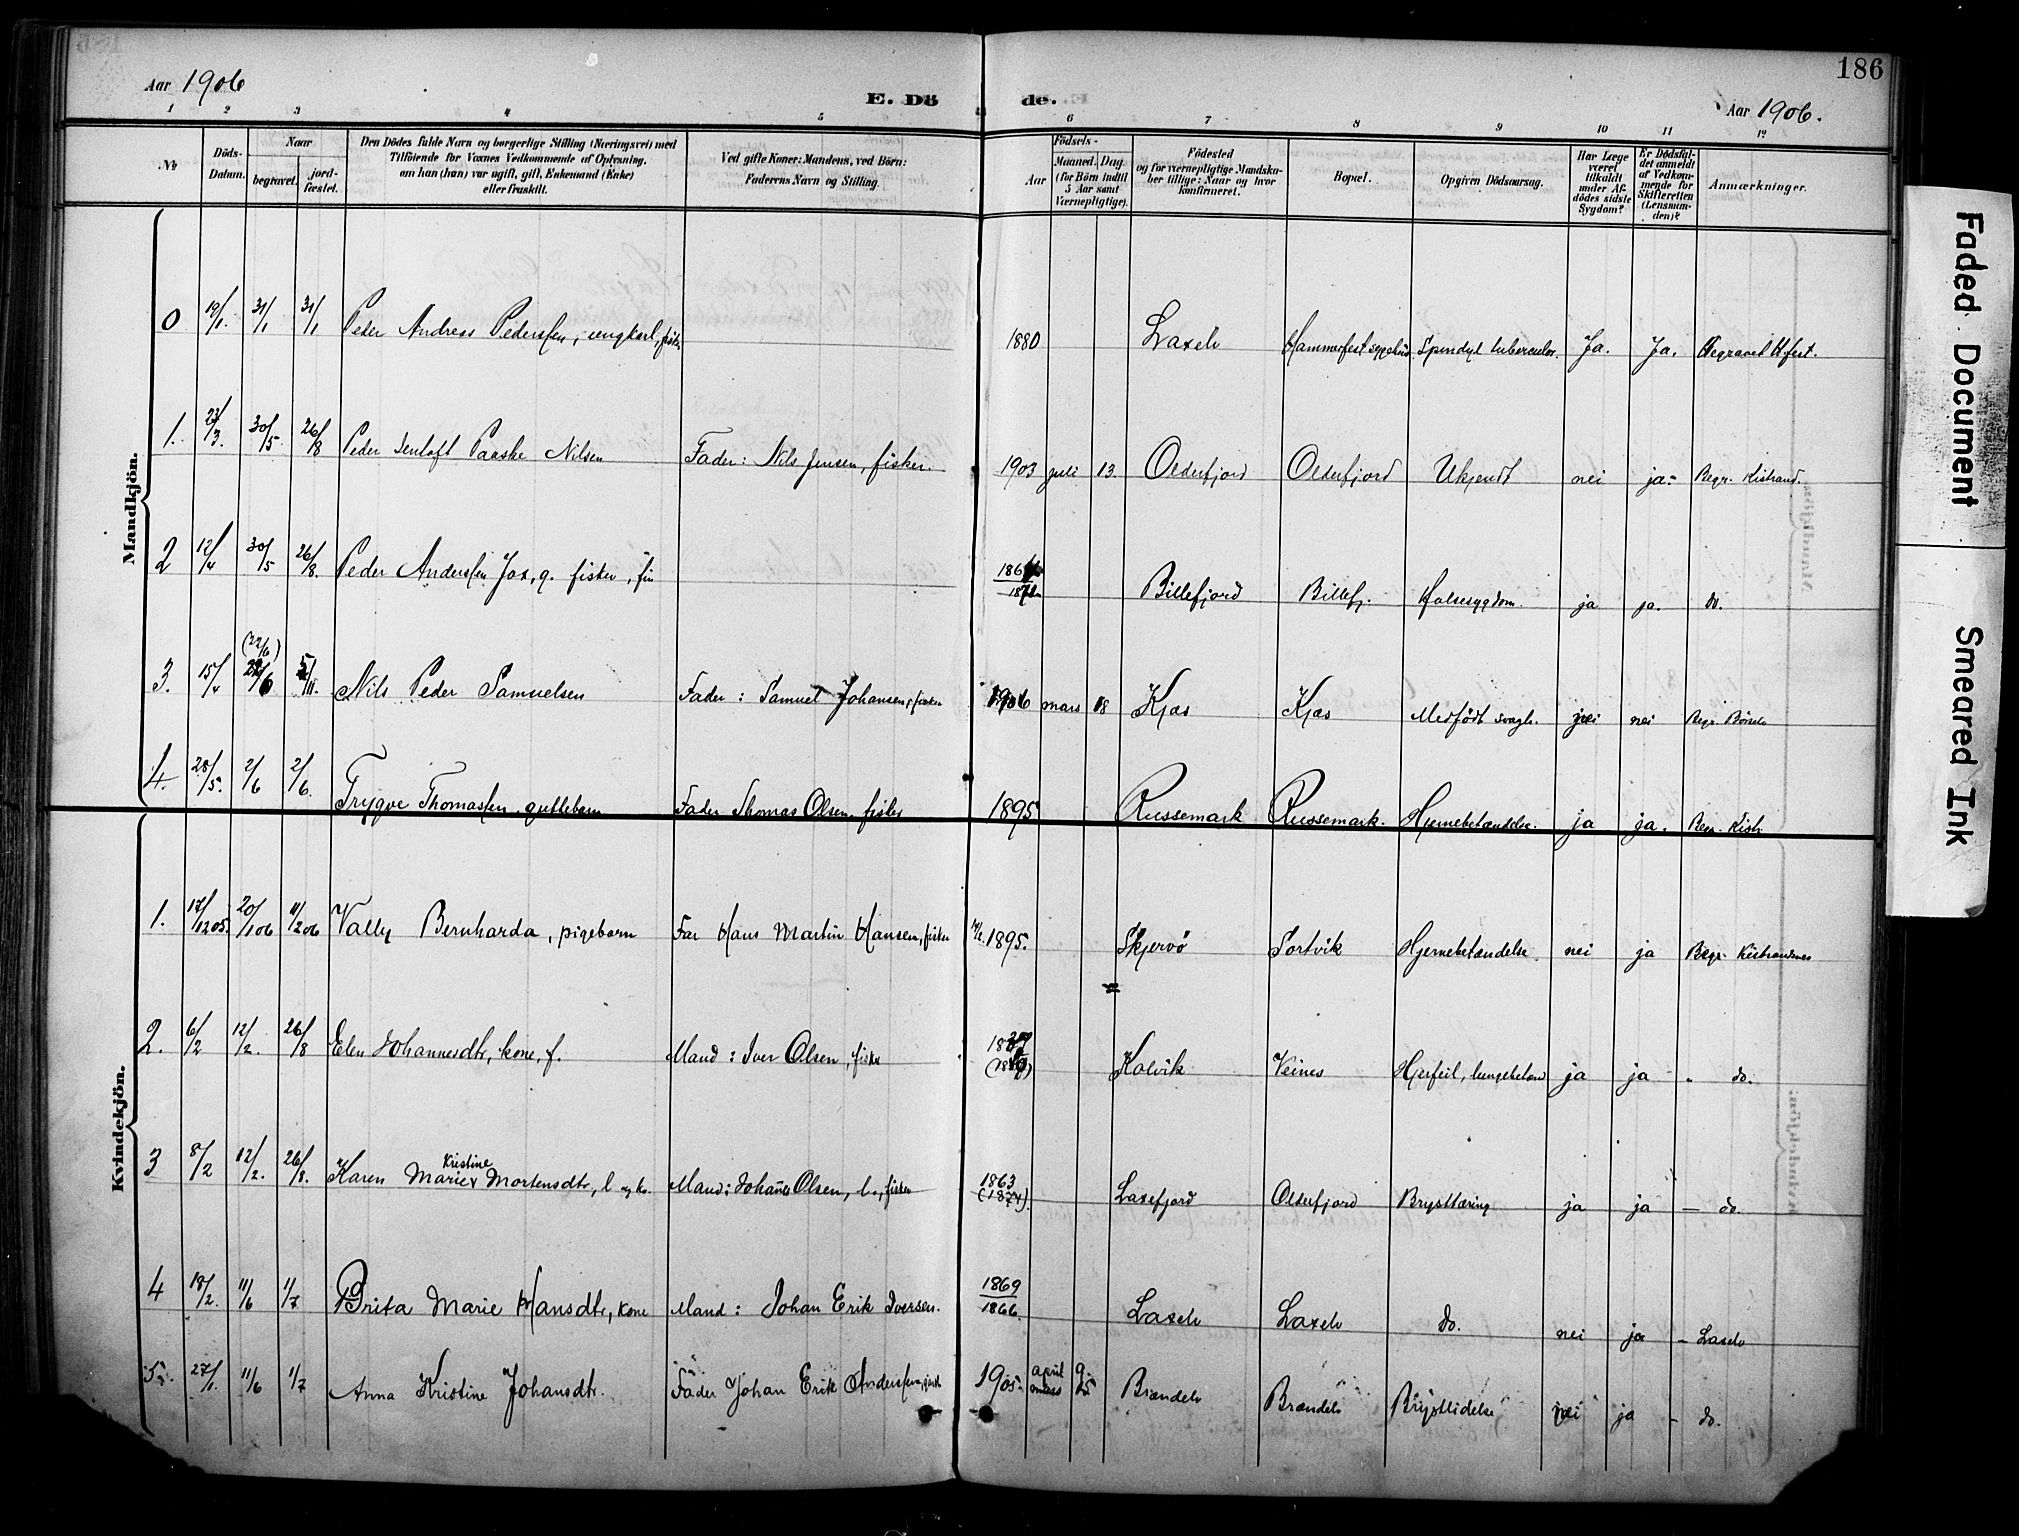 186
Aar 1906
E. Dö de.
Aar 1906.
1 2 3 4 5 6 7 8 9 10 11 12
No
Döds-Datum.
Naar
begravet.
jord-fæstet.
Den Dödes fulde Navn og borgerlige Stilling (Næringsvei) med
Tilföiende for Voxnes Vedkommende af Oplysning,
om han (hun) var ugift, gift, Enkemand (Enke)
eller fraskilt.
Ved gifte Koner: Mandens, ved Börn:
Faderens Navn og Stilling.
Födsels-
Aar
Maaned. Dag.
(for Börn indtil
5 Aar samt
Værnepligtige).
Födested
og for værnepligtige Mandska-
ber tillige: Naar og hvor
konfirmeret.
Bopæl.
Opgiven Dödsaarsag.
Har Læge
været
tilkaldt
under Af-
dödes sidste
Sygdom?
Er Dödsfal-
det anmeldt
af Vedkom-
mende for
Skifteretten
(Lensman-
den)?
Anmærkninger.
Mandkjön.
0 19/1. 31/1 31/1 Peder Andreas Pedersen, ungkarl, fisker 1880 Laxelv Hammerfest sygehus. Spondyl. tuberculos. Ja. Ja. Begravet Hfest.
1. 23/3. 30/5. 26/8 Peder Paaske Nilsen Fader: Nils Jensen, fisker. 1903 juli 13. Olderfjord Olderfjord Ukjendt nei ja.- Begr. Kistrand.
2 12/4 30/5 26/8. Peder Andersen Jox, g. fisker, fin Billefjord Billefj. Halsesygdom. ja ja. do.
(22/6)
3. 15/4 Nils Peder Samuelsen Fader: Samuel Johansen, fisker 1906 mars 18 Kjæs Kjæs Medfödt svagh. nei nei Begr. Börselv
4. 28/5. 2/6 2/6. Trygve Thomassen, guttebarn Fader Thomas Olsen, fisker 1895 Russemark Russemark. Hjernebetændelse. ja ja. Begr. Kistr.
Kvindekjön.
1. 17/12 05. 20/1 06 11/2 06 Vally Bernharda, pigebarn Far Hans Martin Hansen, fisker 1895. Skjervö Sortvik Hjernebetændelse. nei ja Begr. Kistrandnes
2. 6/2 12/2. 26/8 Elen Johannesdtr, kone, f. Mand: Iver Olsen, fisker Kolvik Veines Hjerfeil, lungebetænd ja ja " do.
3 8/2 12/2. 26/8. Karen Marie Kristine Mortensdtr, l. og k. Mand: Johañes Olsen, l., fisker 1863 (1874). Laxefjord Olderfjord Brysttæring ja ja — do.
4 18/2. 11/6 1/7 Brita Marie Hansdtr, kone Mand: Johan Erik Iversen. 1869 1866. Laxelv Laxelv do. nei ja - Laxelv
5. 27/1. 11/6 1/7 Anna Kristine Johansdtr. Fader Johan Erik Andersen, 1905 april mars 9. 25 Brændelv Brændelv Brystlidelse nei ja - do.
Faded Document
Smeared Ink